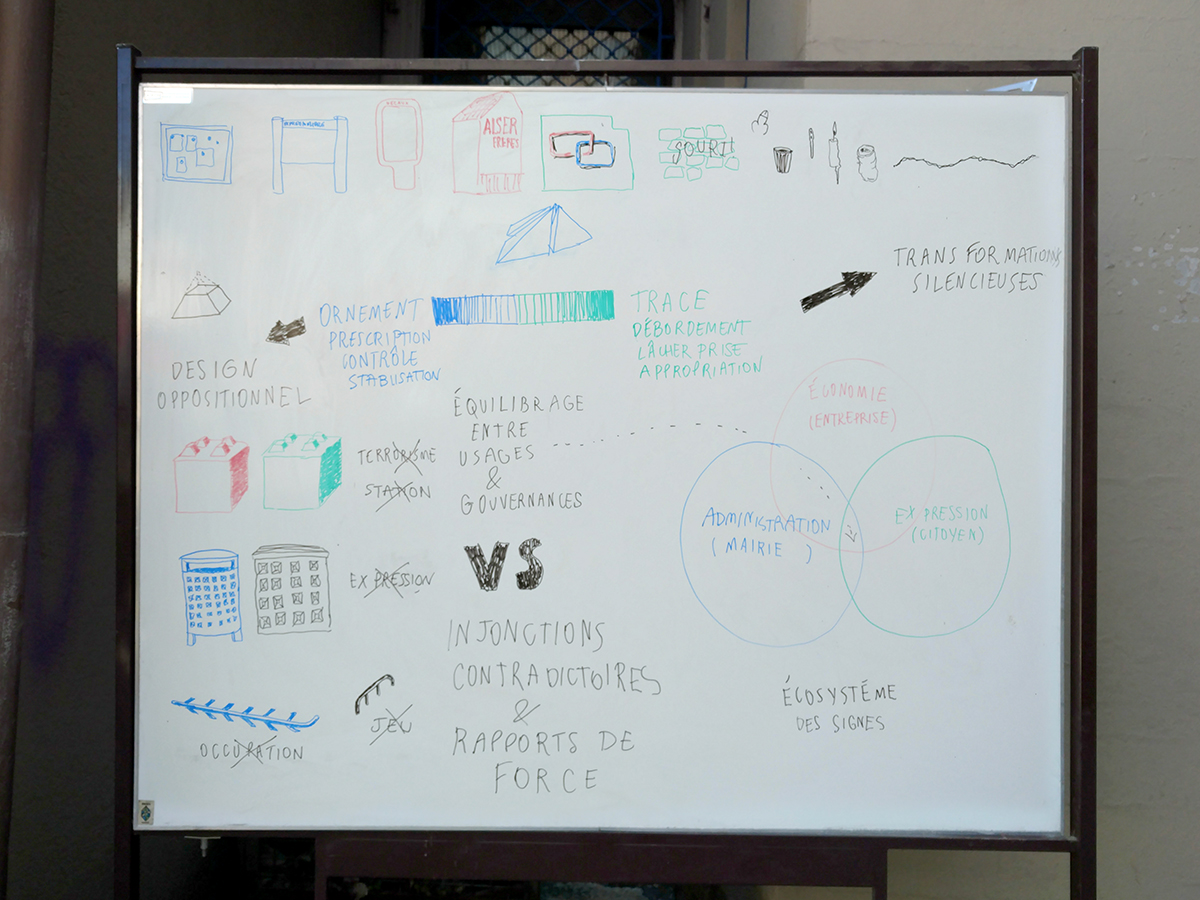 ALSER
FRÈRES
SOURI!
TRANSFORMATIONS
SILENCIEUSES
ORNEMENT
PRESCRIPTION
CONTRÔLE
STABILISATION
TRACE
DÉBORDEMENT
LÂCHER PRISE
APPROPRIATION
DESIGN
OPPOSITIONNEL
ÉQUILIBRAGE
ENTRE
USAGES
&
GOUVERNANCES
ÉCONOMIE
(ENTREPRISE)
ADMINISTRATION
( MAIRIE )
EXPRESSION
(CITOYEN)
TERRORISME
STATION
EXPRESSION
VS
INJONCTIONS
CONTRADICTOIRES
&
RAPPORTS DE
FORCE
JEU
OCCUPATION
ÉCOSYSTÉME
DES SIGNES